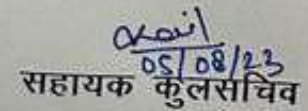 05/08/23
सहायक कुलसचिव